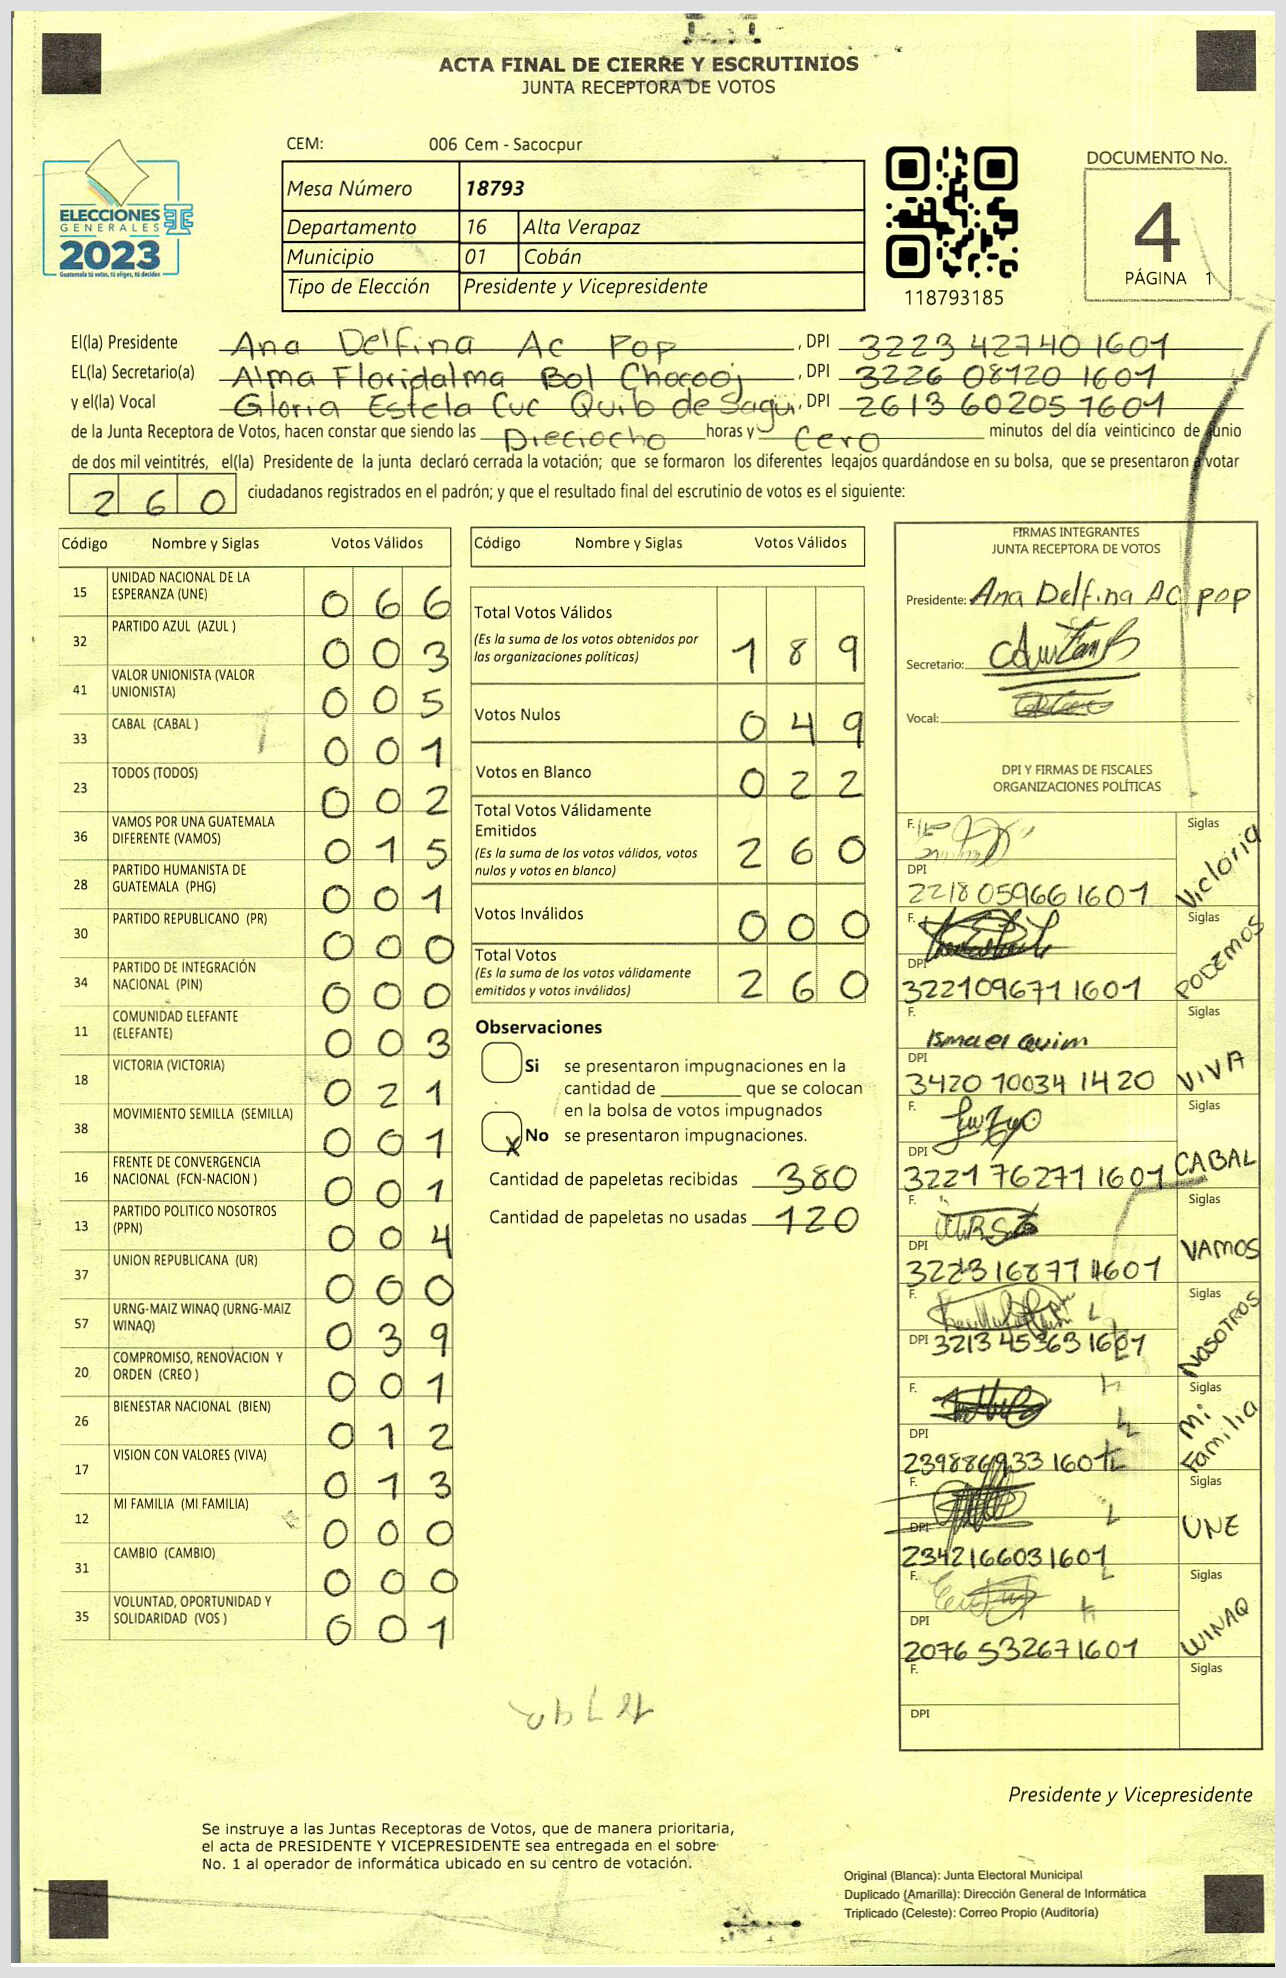 ACTA FINAL DE CIERRE Y ESCRUTINIOS
JUNTA RECEPTORA DE VOTOS
CEM: 006 Cem - Sacocpur
Mesa Número 18793
Departamento 16 Alta Verapaz
Municipio 01 Cobán
Tipo de Elección Presidente y Vicepresidente
ELECCIONES
GENERALES
2023
Guatemala tú votas, tú eliges, tú decides
118793185
DOCUMENTO No.
4
PÁGINA 1
El(la) Presidente Ana Delfina Ac Pop, DPI 3223 42740 1601
EL(la) Secretario(a) Alma Floridalma Bol Chocooj, DPI 3226 08120 1601
y el(la) Vocal Gloria Estela Cuc Quib de Sagui, DPI 2613 60205 1601
de la Junta Receptora de Votos, hacen constar que siendo las Dieciocho horas y Cero minutos del día veinticinco de junio
de dos mil veintitrés, el(la) Presidente de la junta declaró cerrada la votación; que se formaron los diferentes legajos guardándose en su bolsa, que se presentaron a votar
260 ciudadanos registrados en el padrón; y que el resultado final del escrutinio de votos es el siguiente:
Código Nombre y Siglas Votos Válidos
15 UNIDAD NACIONAL DE LA
ESPERANZA (UNE) 066
32 PARTIDO AZUL (AZUL ) 003
41 VALOR UNIONISTA (VALOR
UNIONISTA) 005
33 CABAL (CABAL ) 001
23 TODOS (TODOS) 002
36 VAMOS POR UNA GUATEMALA
DIFERENTE (VAMOS) 015
28 PARTIDO HUMANISTA DE
GUATEMALA (PHG) 001
30 PARTIDO REPUBLICANO (PR) 000
34 PARTIDO DE INTEGRACIÓN
NACIONAL (PIN) 000
11 COMUNIDAD ELEFANTE
(ELEFANTE) 003
18 VICTORIA (VICTORIA) 021
38 MOVIMIENTO SEMILLA (SEMILLA) 001
16 FRENTE DE CONVERGENCIA
NACIONAL (FCN-NACION ) 001
13 PARTIDO POLITICO NOSOTROS
(PPN) 004
37 UNION REPUBLICANA (UR) 000
57 URNG-MAIZ WINAQ (URNG-MAIZ
WINAQ) 039
20 COMPROMISO, RENOVACION Y
ORDEN (CREO ) 001
26 BIENESTAR NACIONAL (BIEN) 012
17 VISION CON VALORES (VIVA) 013
12 MI FAMILIA (MI FAMILIA) 000
31 CAMBIO (CAMBIO) 000
35 VOLUNTAD, OPORTUNIDAD Y
SOLIDARIDAD (VOS ) 001
Código Nombre y Siglas Votos Válidos
Total Votos Válidos 189
(Es la suma de los votos obtenidos por
las organizaciones políticas)
Votos Nulos 049
Votos en Blanco 022
Total Votos Válidamente
Emitidos 260
(Es la suma de los votos válidos, votos
nulos y votos en blanco)
Votos Inválidos 000
Total Votos 260
(Es la suma de los votos válidamente
emitidos y votos inválidos)
Observaciones
Si se presentaron impugnaciones en la
cantidad de ________ que se colocan
en la bolsa de votos impugnados
X No se presentaron impugnaciones.
Cantidad de papeletas recibidas 380
Cantidad de papeletas no usadas 120
FIRMAS INTEGRANTES
JUNTA RECEPTORA DE VOTOS
Presidente: Ana Delfina Ac pop
Secretario:
Vocal:
DPI Y FIRMAS DE FISCALES
ORGANIZACIONES POLÍTICAS
F. Siglas Victoria
DPI 2218 05966 1601
F. Siglas PODEMOS
DPI 322109671 1601
F. Ismael Quim Siglas VIVA
DPI 3420 10034 1420
F. Siglas CABAL
DPI 3221 76271 1601
F. Siglas VAMOS
DPI
F. Siglas NOSOTROS
DPI 3213 45363 1601
F. Siglas Mi Familia
DPI 239886933 1601
F. Siglas UNE
DPI 2342166031601
F. Siglas WINAQ
DPI 2076 53267 1601
F. Siglas
DPI
Presidente y Vicepresidente
Se instruye a las Juntas Receptoras de Votos, que de manera prioritaria,
el acta de PRESIDENTE Y VICEPRESIDENTE sea entregada en el sobre
No. 1 al operador de informática ubicado en su centro de votación.
Original (Blanca): Junta Electoral Municipal
Duplicado (Amarilla): Dirección General de Informática
Triplicado (Celeste): Correo Propio (Auditoría)